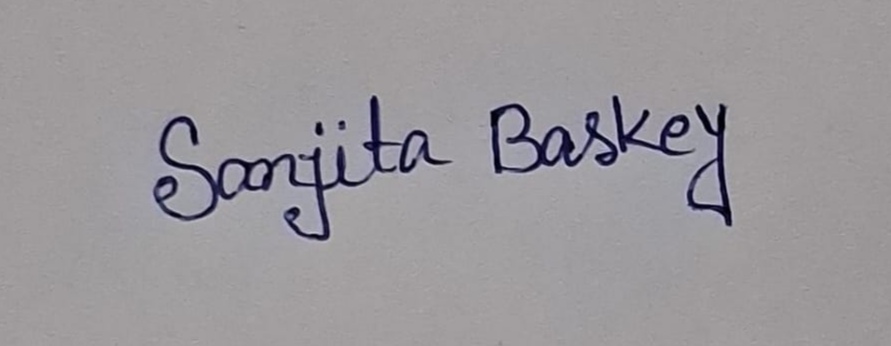 Sanjita Baskey